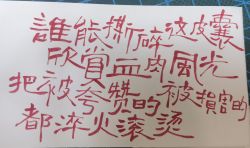 誰能撕碎這皮囊
欣賞血肉風光
把被夸赞的被損害的
都淬火滚烫